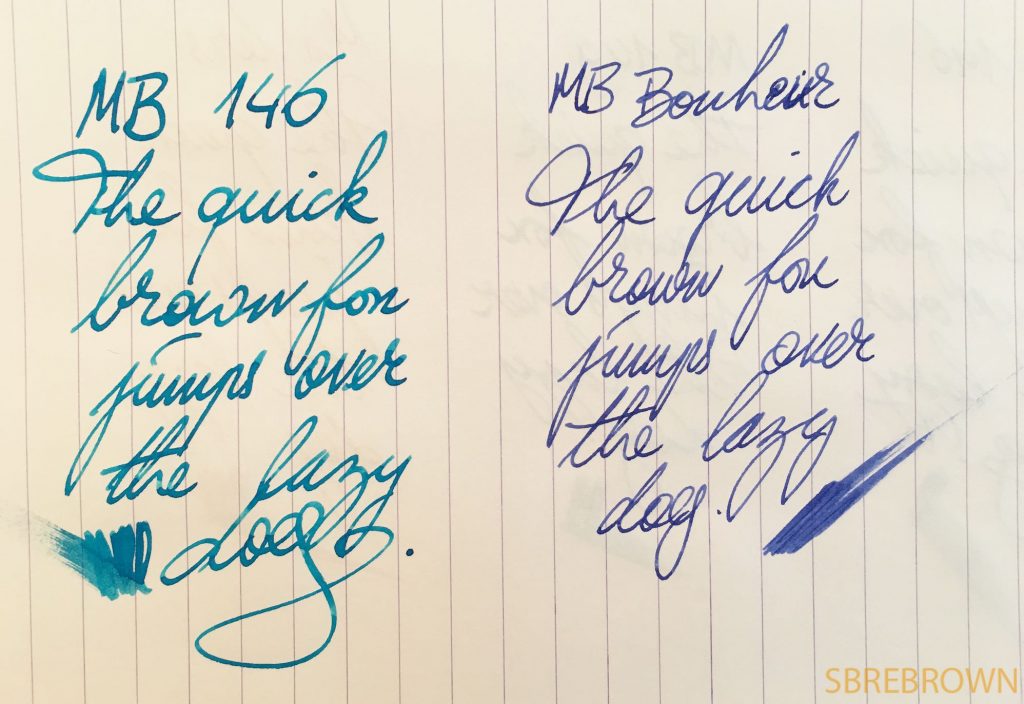 MB 146
The quick
brown fox
jumps over
the lazy
dog.
MB Bonheur
The quick
brown fox
jumps over
the lazy
dog.
SBREBROWN